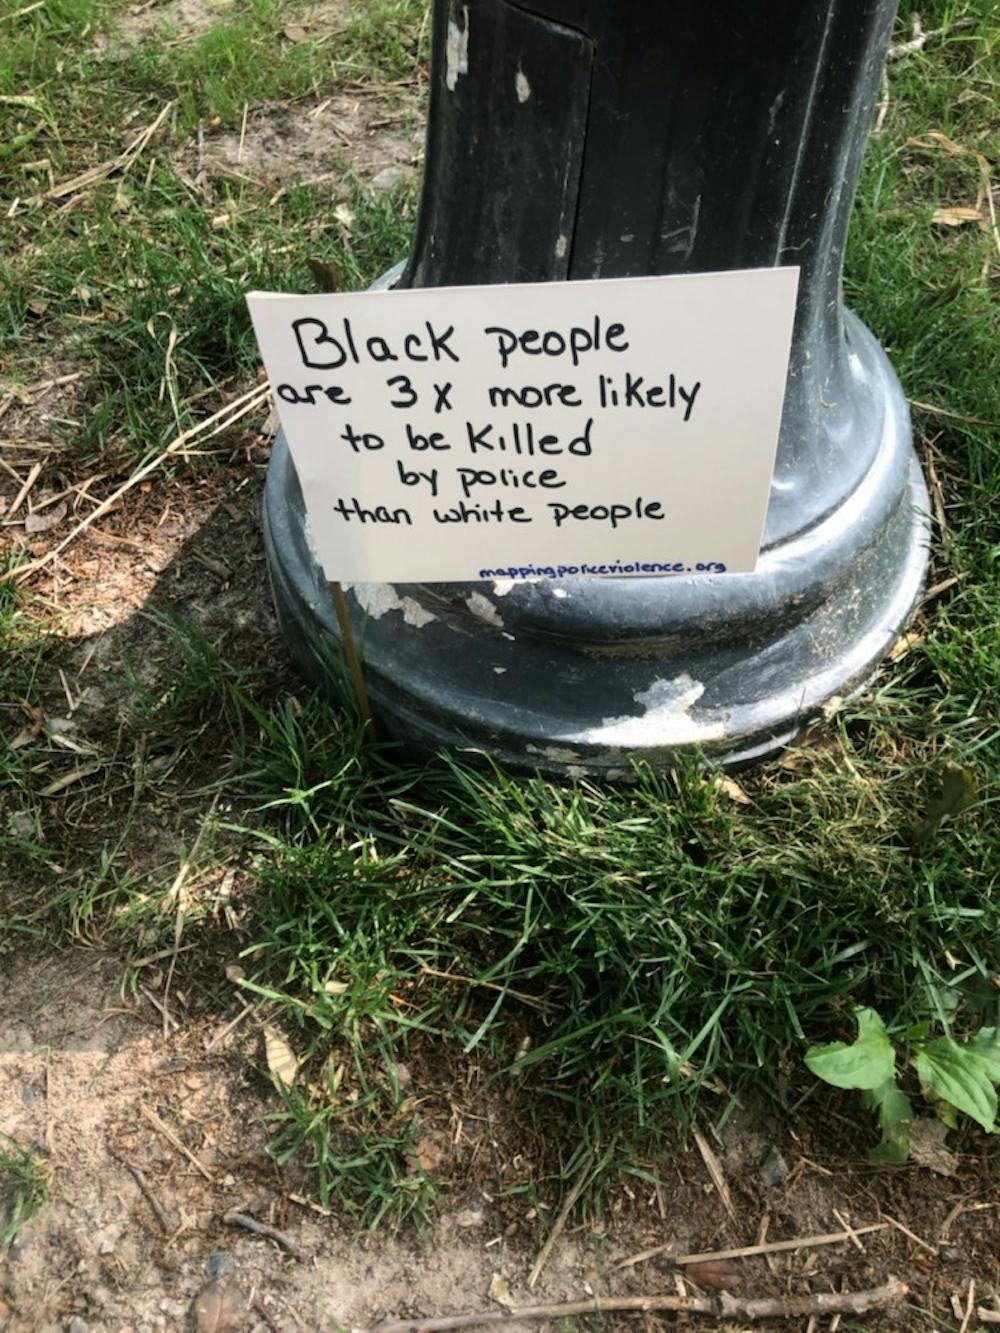 Black people
are 3x more likely
to be Killed
by police
than white people
mappingpoliceviolence.org